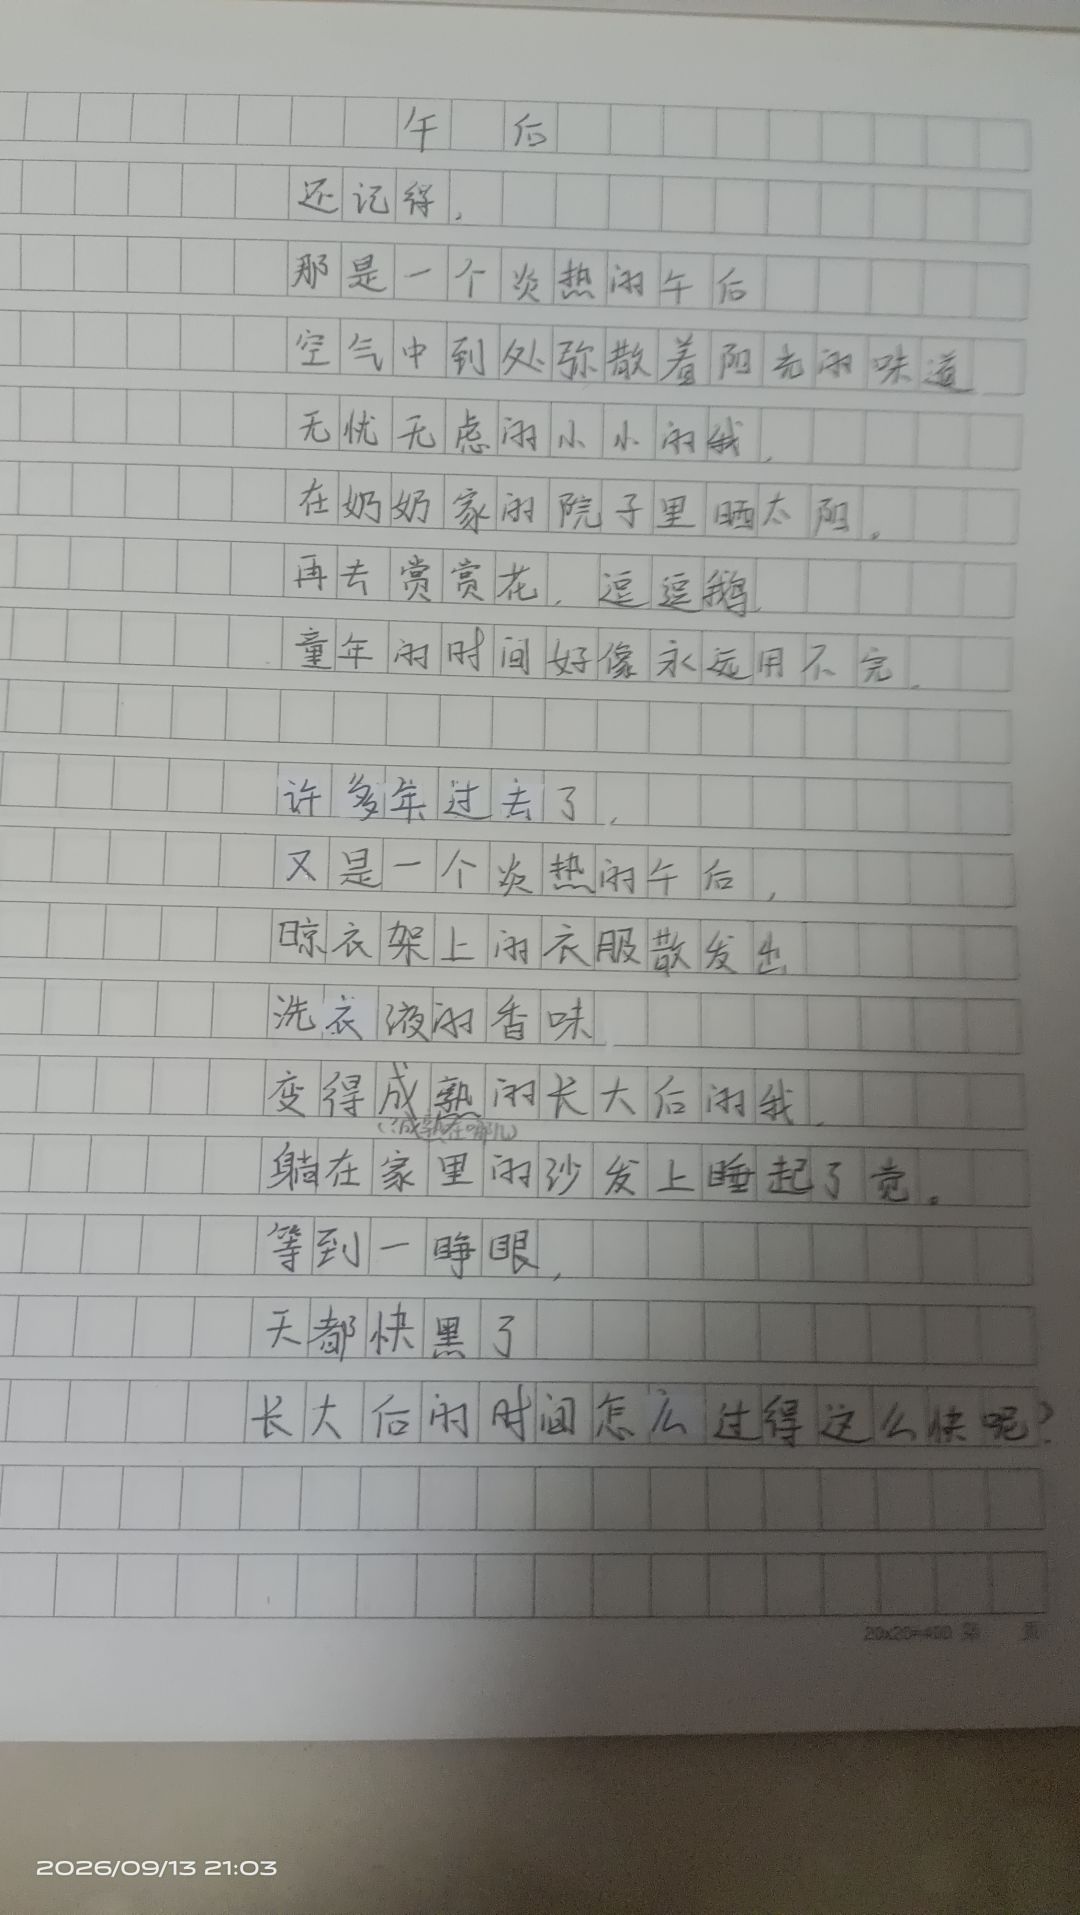 午 后
还记得，
那是一个炎热的午后
空气中到处弥散着阳光的味道
无忧无虑的小小的我，
在奶奶家的院子里晒太阳。
再去赏赏花，逗逗鹅，
童年的时间好像永远用不完，
许多年过去了，
又是一个炎热的午后，
晾衣架上的衣服散发出
洗衣液的香味
变得成熟的长大后的我，
(?成熟在哪儿)
躺在家里的沙发上睡起了觉。
等到一睁眼，
天都快黑了
长大后的时间怎么过得这么快呢？
20x20=400 第 页
2026/09/13 21:03